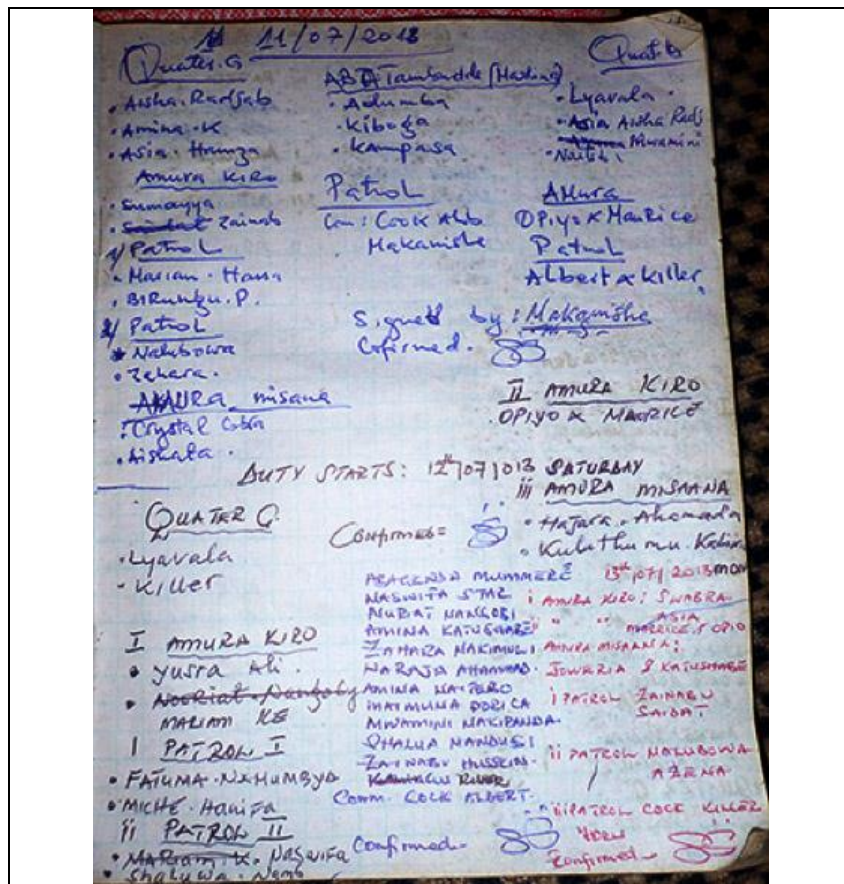 11/07/2013
Quater.G
• Aisha. Radjab
• Amina. K
• Asia. Hamza
Amura Kiro
• Sumayya
• Zainab
1/ Patrol
• Mariam. Hassa
• BIRungu. P.
2/ Patrol
• Nalubowa
• Zahara.
AMURA misana
: Crystal Cobra
• Aishata.
• Adumba
• Kiboga
• Kampasa
Patrol
Com: Cook Alb
Makanishe
Signed by: Makanishe
Cofirmed.
• Lyavala
• Asia Aisha Radj
Mwamini
AMura
OPiyo & Maurice
Patrol
Albert & Killer
II AMURA KIRO
OPIYO & MAURICE
DUTY STARTS: 12th/07/013 SATURDAY
QUATER G.
• Lyavala
- Killer
Confirmed=
iii AMURA MISAANA
• Hajara. Ahamada
• Kuluthumu. Kabira
I AMURA KIRO
• Yusra Ali.
MARIAM KE
I PATROL I
• FATUMA. NAMUMBYA
• MICHE. Hanifa
ii PATROL II
• Mariam. K. Naswifa
• Shaluwa. Namb
NASWIFA STAR
NUBAT NANGOBI
AMINA KATUSHABE
ZAHARA NAKIMULI
AMINA NATERO
MAYMUNA DORICA
MWAMINI NAKIPANDA
SHALUA NANDUSI
ZAINABU HUSSEIN.
RIVER
Comm. COCK ALBERT.
Confirmed-
13th/07/2013 mon
i AMURA KIRO: SWABRA
" " ASIA
MORRICE & OPIO
AMURA MISAANA:
JOWERIA & KATUSHABE
i PATROL ZAINABU
SAIDAT
ii PATROL NALUBOWA
AZENA
iii PATROL COCK KILLER
Confirmed-